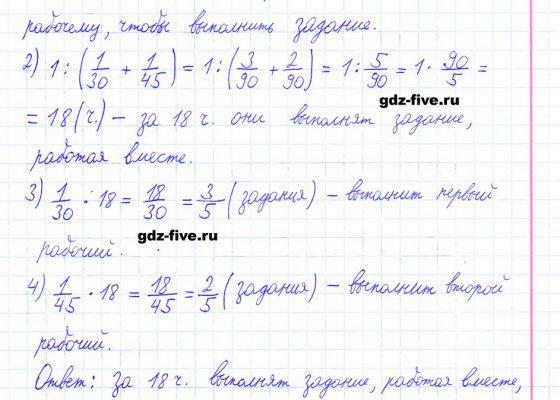 рабочему, чтобы выполнить задание.
2) 1 : (1/30 + 1/45) = 1 : (3/90 + 2/90) = 1 : 5/90 = 1 · 90/5 =
gdz-five.ru
= 18 (ч.) – за 18 ч. они выполнят задание,
работая вместе.
3) 1/30 · 18 = 18/30 = 3/5 (задания) – выполнит первый
gdz-five.ru
рабочий.
4) 1/45 · 18 = 18/45 = 2/5 (задания) – выполнит второй
рабочий.
Ответ: за 18 ч. выполнят задание, работая вместе,